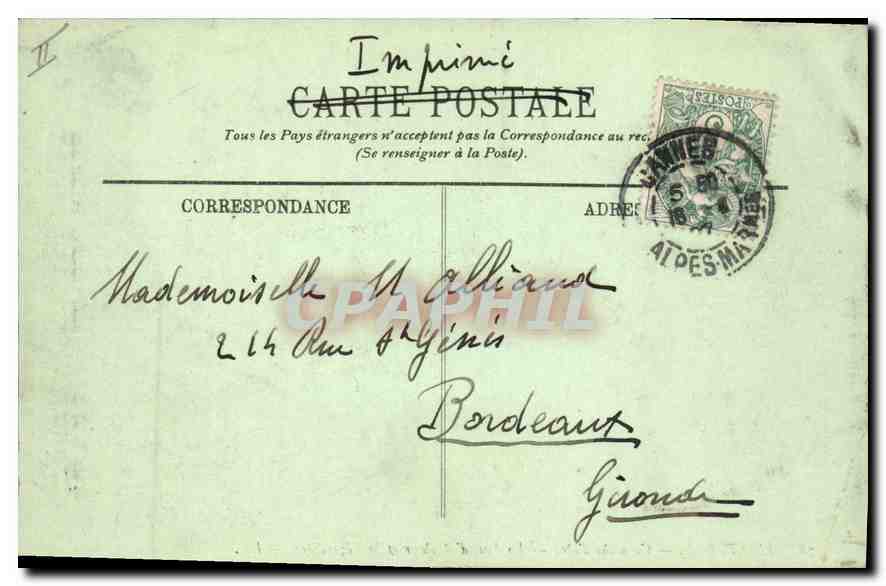 II
Imprimé
CARTE POSTALE
Tous les Pays étrangers n'acceptent pas la Correspondance au rec
(Se renseigner à la Poste).
CORRESPONDANCE
ADRES
POSTES
CANNES
ALPES-MARMES
Mademoiselle M Alliaud
214 Rue St Génès
Bordeaux
Gironde
CPAPHIL